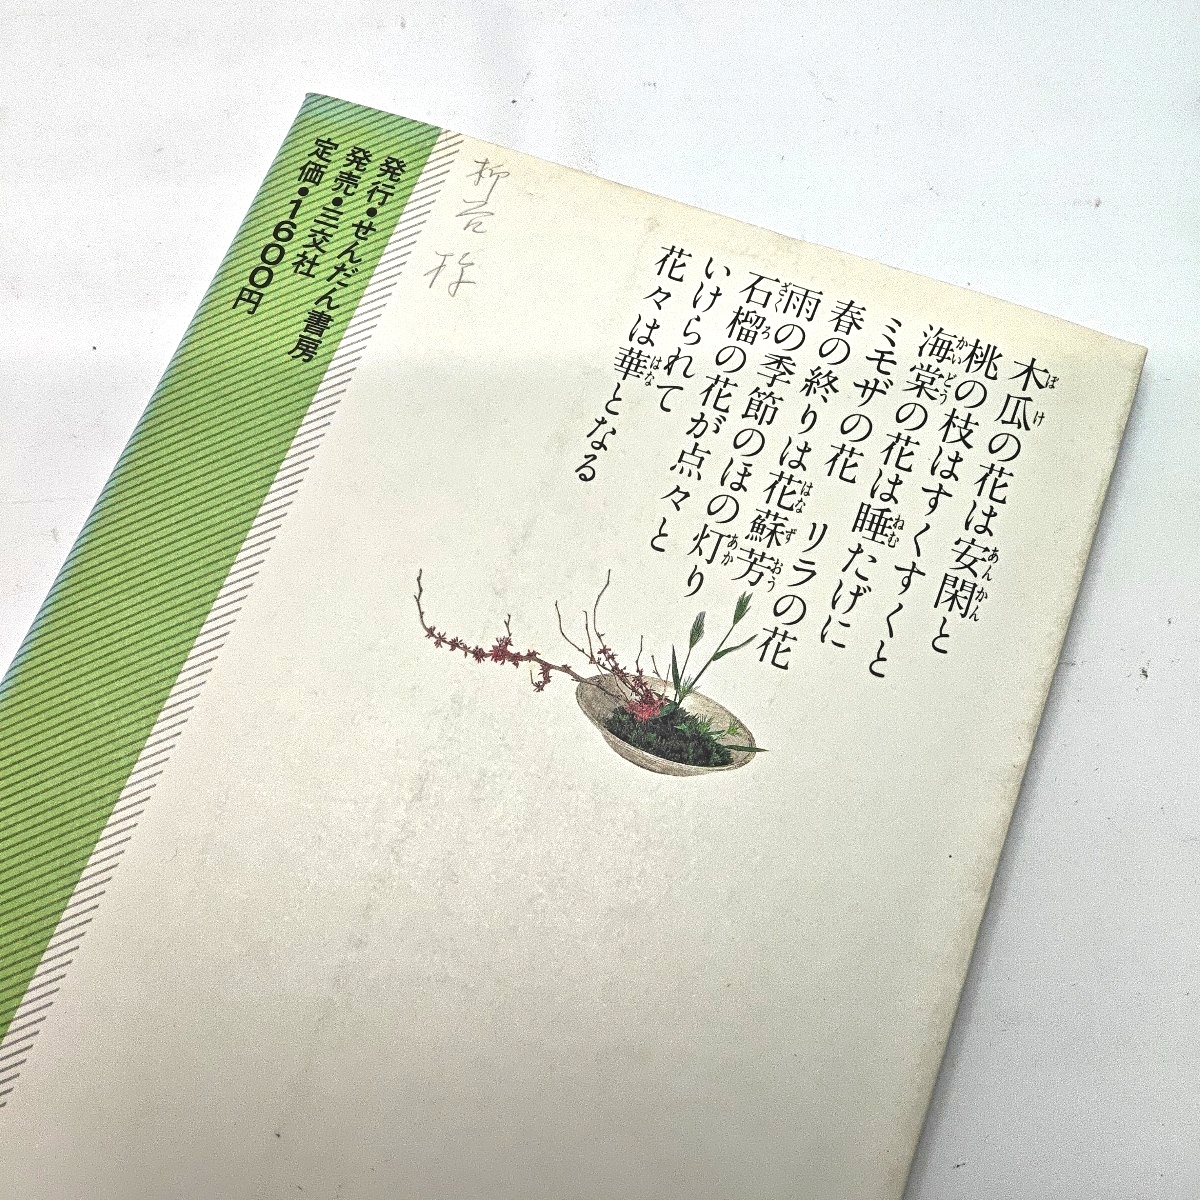 木瓜の花は安閑と
桃の枝はすくすくと
海棠の花は睡たげに
ミモザの花　リラの花
春の終りは花蘇芳
雨の季節のほの灯り
石榴の花が点々と
いけられて
花々は華となる
発行・せんだん書房
発売・三交社
定価・1600円